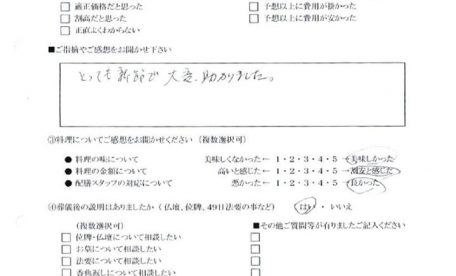 □ 適正価格だと思った □ 予想以上に費用が掛かった
□ 割高だと思った □ 予想以上に費用が安かった
□ 正直よくわからない
■ご指摘やご感想をお聞かせ下さい
とっても 大変、助かりました。
③料理についてご感想をお聞かせください（複数選択可）
● 料理の味について 美味しくなかった ← 1・2・3・4・5 → 美味しかった
● 料理の金額について 高いと感じた ← 1・2・3・4・5 → 割安と感じた
● 配膳スタッフの対応について 悪かった ← 1・2・3・4・5 → 良かった
④葬儀後の説明はありましたか（仏壇、位牌、49日法要の事など） はい ・ いいえ
（複数選択可） ■その他ご質問等が有りましたらご記入ください
□ 位牌・仏壇について相談したい
□ お墓について相談したい
□ 法要について相談したい
□ 香典返しについて相談したい